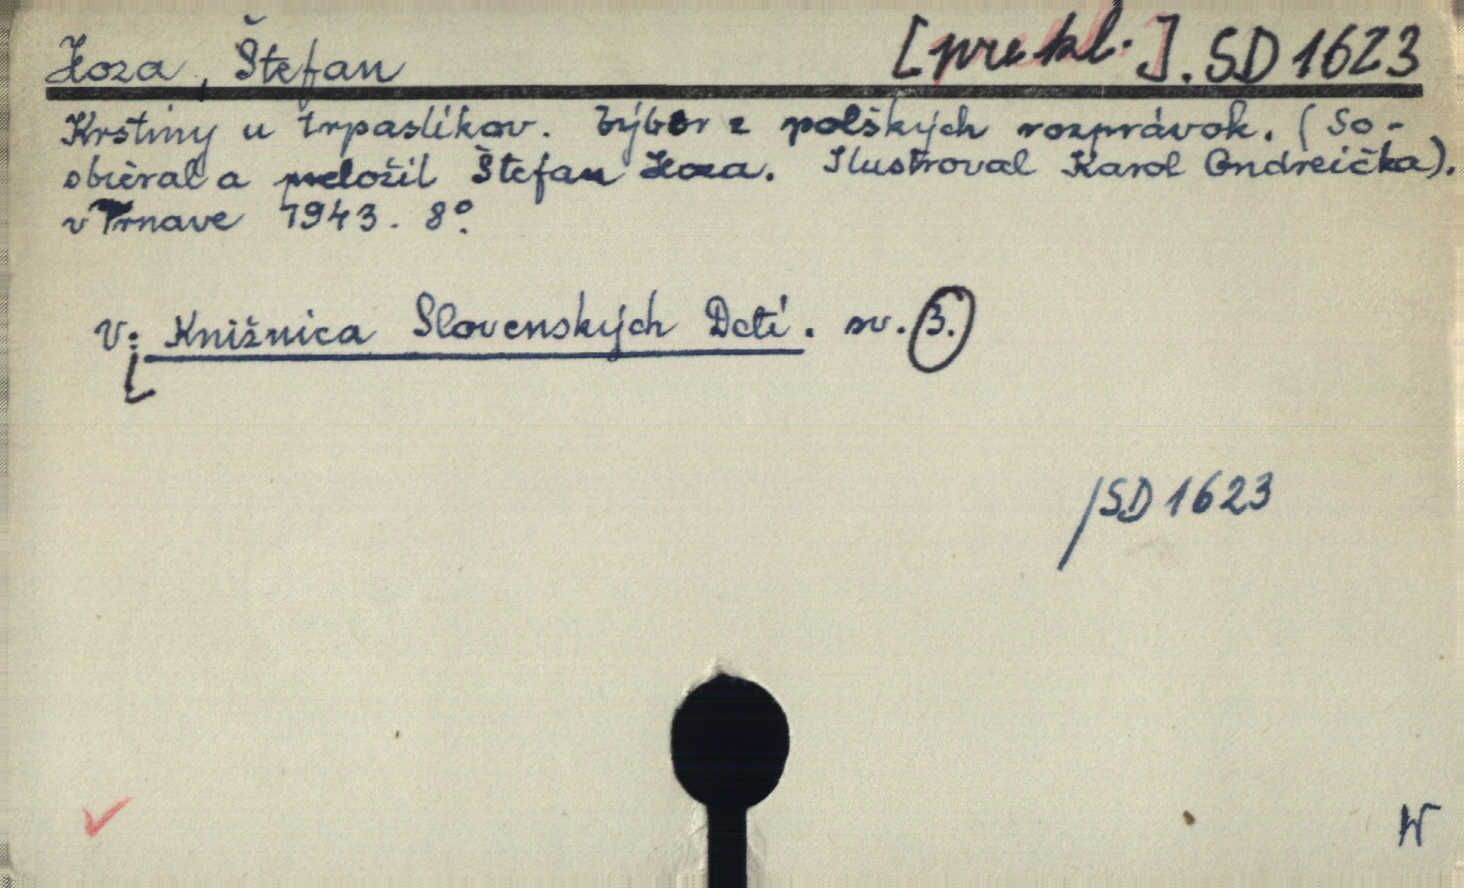 Hoza, Štefan [prekl.]. SD 1623
Krstiny u trpaslíkov. Výber z polských rozprávok. (So-
sbieral a preložil Štefan Hoza. Ilustroval Karol Ondreička).
v Trnave 1943. 8°.
V: Knižnica Slovenských Detí. sv. 3.
SD 1623
W